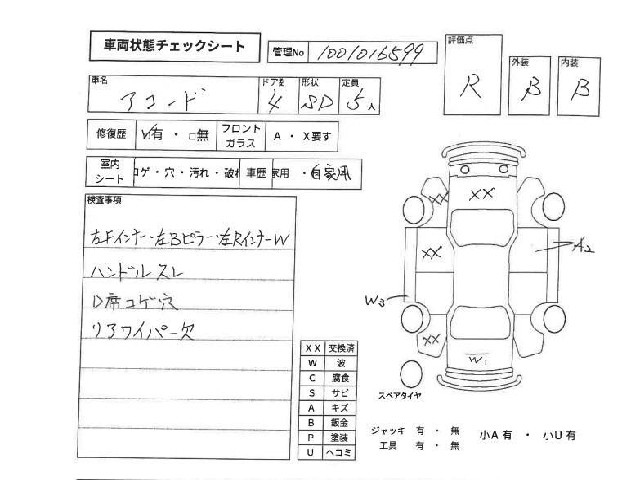 車両状態チェックシート
管理No 1001016599
評価点 R
外装 B
内装 B
車名 アコード
ドア数 4
形状 SD
定員 5人
修復歴 ☑有 ・ □無
フロントガラス A ・ X要す
室内シート コゲ・穴・汚れ・破れ
車歴 家用 ・ 自家用
検査事項
左Fインナー・左Bピラー・左RインナーW
ハンドルスレ
D席コゲ穴
リアワイパー欠
XX 交換済
W 波
C 腐食
S サビ
A キズ
B 鈑金
P 塗装
U ヘコミ
XX
XX
XX
A2
W3
XX
W1
スペアタイヤ
ジャッキ 有 ・ 無
工具 有 ・ 無
小A 有 ・ 小U 有